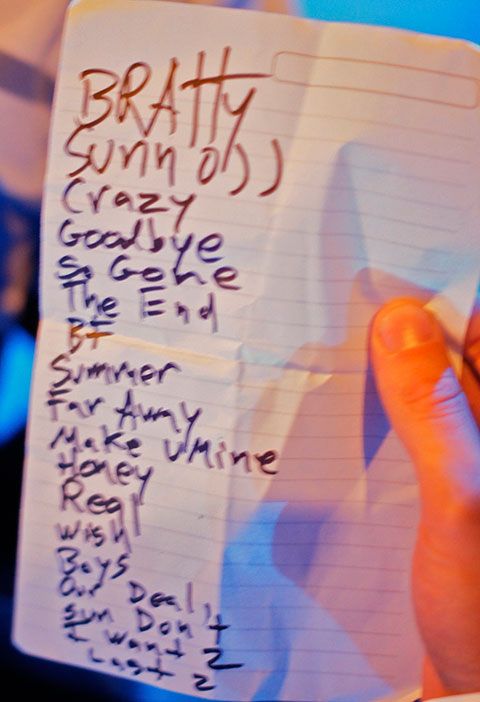 BRAtty
Sunn o))
Crazy
Goodbye
So Gone
The End
BF
Summer
Far Away
Make U Mine
Honey
Real
Wish
Boys
Our Deal
Sun Don't
I want 2
Last 2